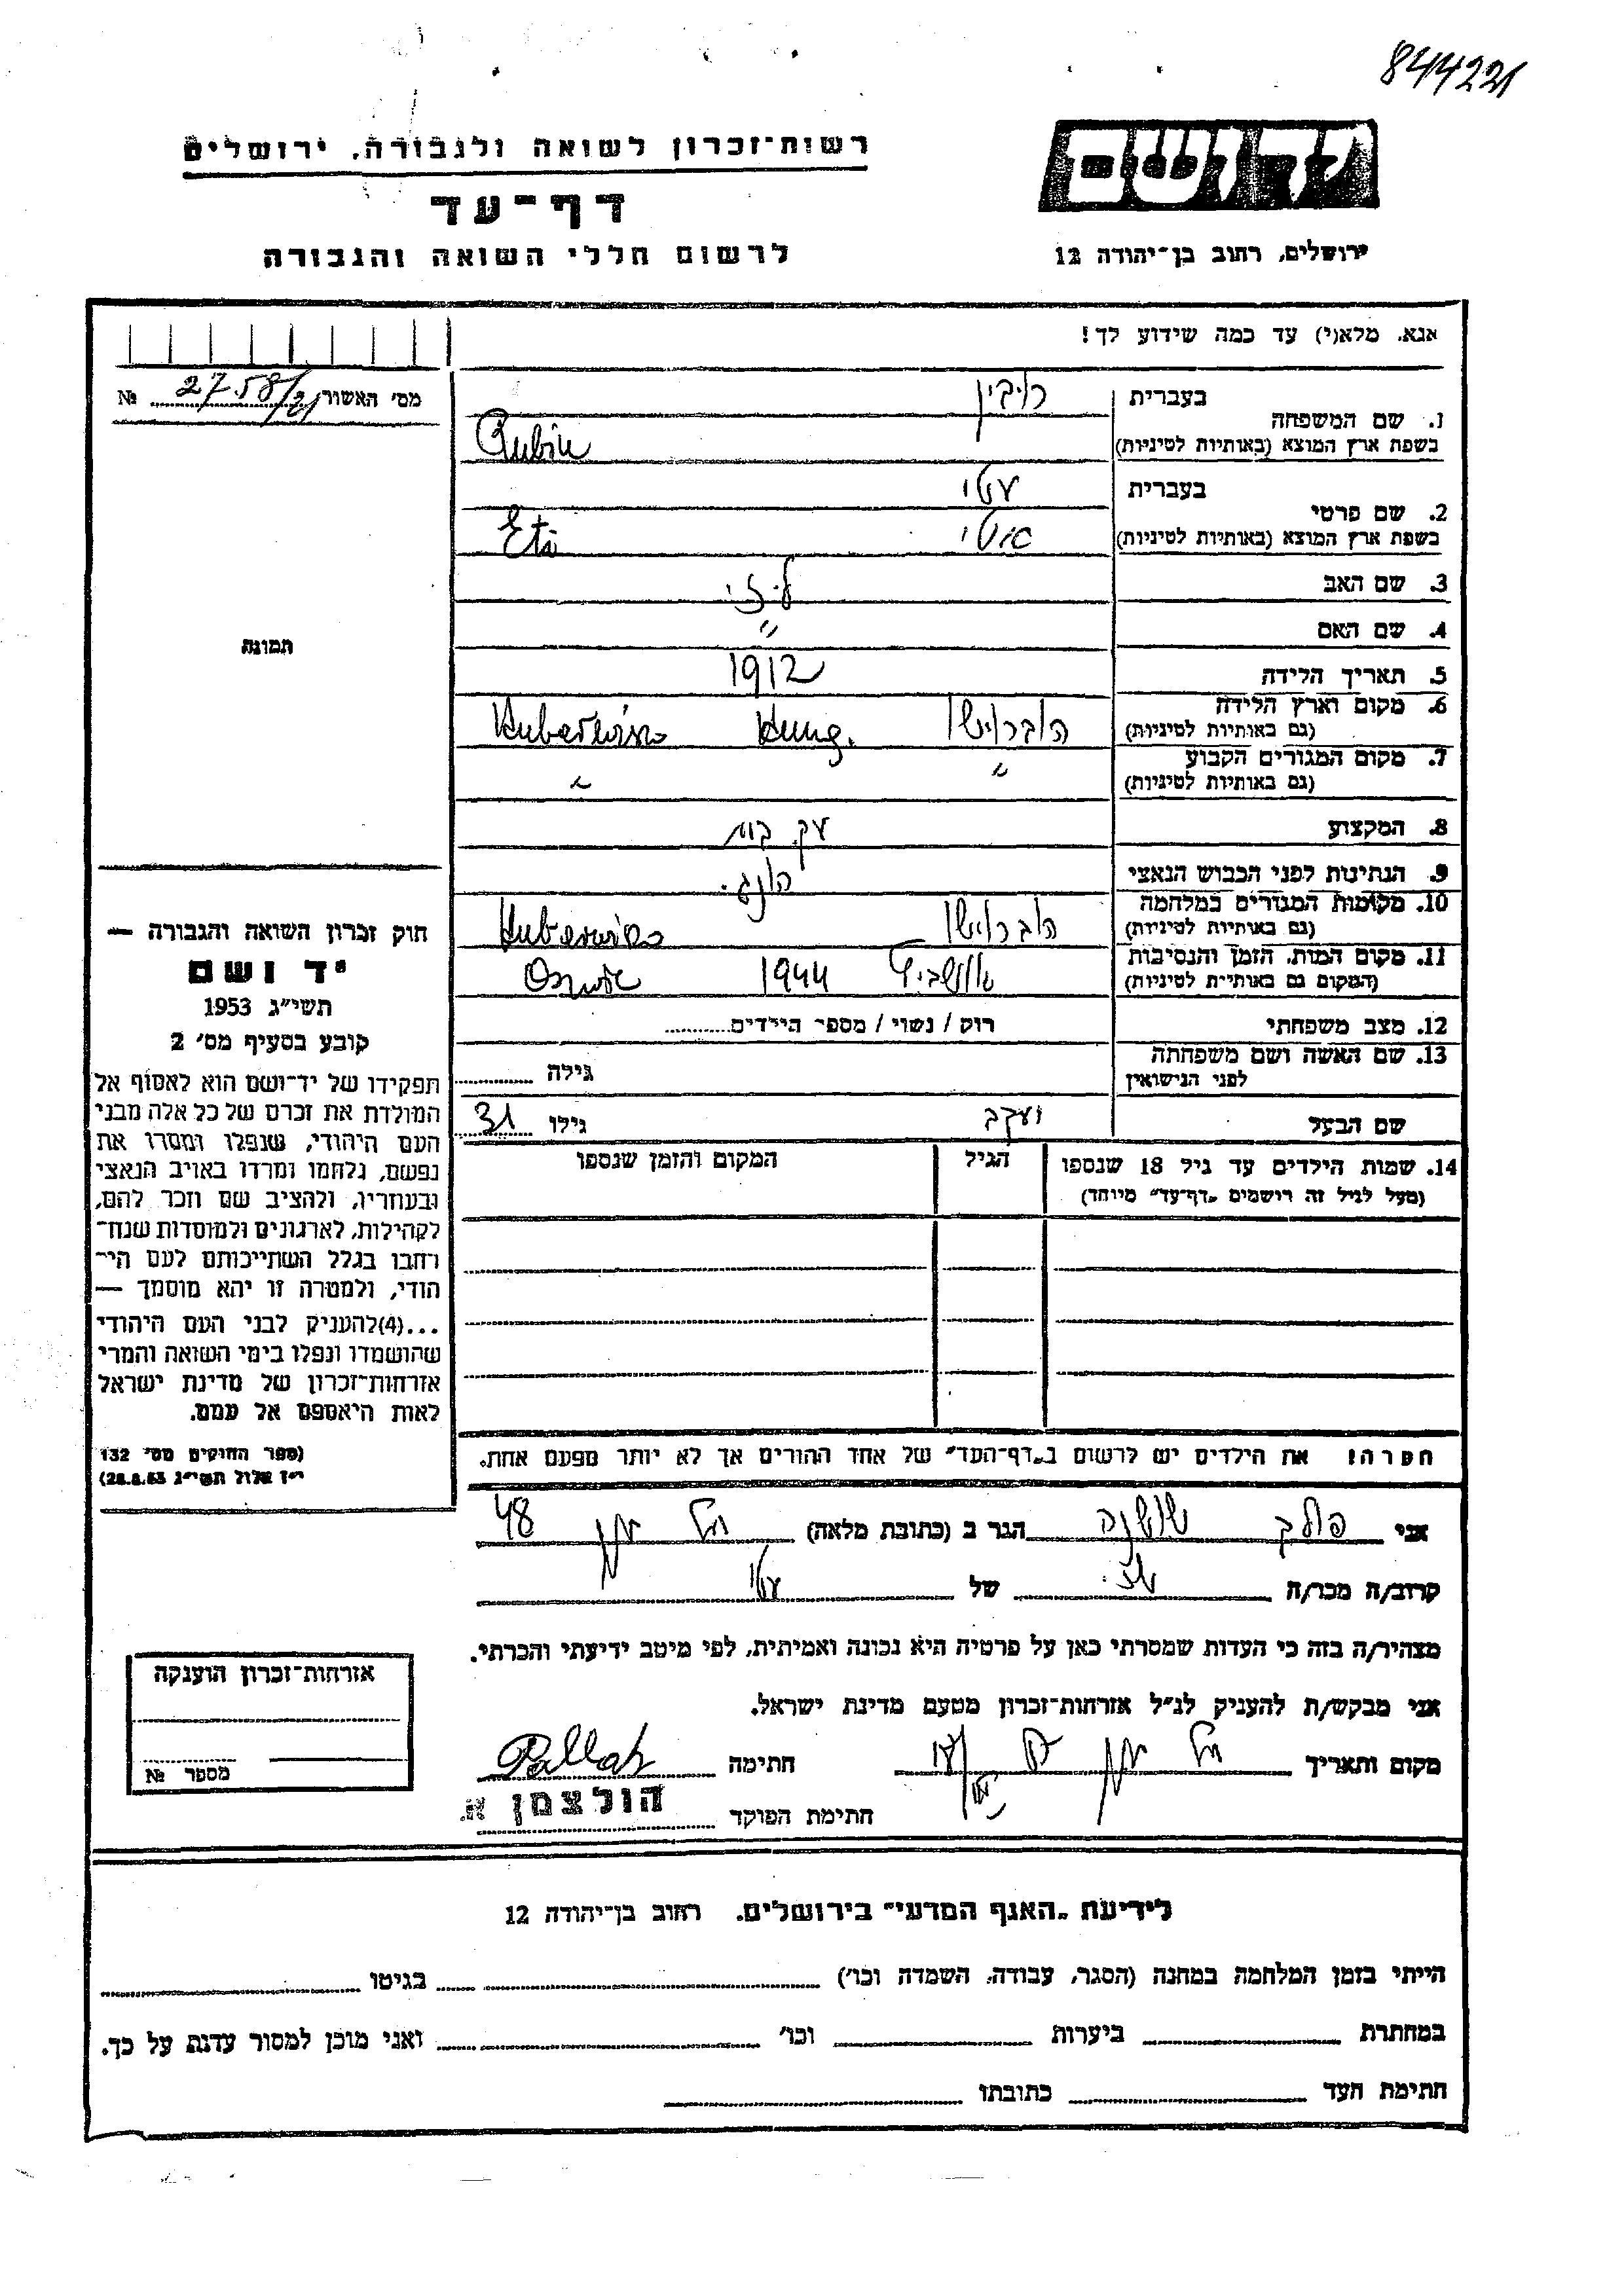 844221
יד ושם
רשות־זכרון לשואה ולגבורה, ירושלים
דף־עד
לרשום חללי השואה והגבורה
ירושלים, רחוב בן־יהודה 12
אנא, מלא(י) עד כמה שידוע לך!
מס׳ האשור 2758/21 №
1. שם המשפחה
בעברית רובין
בשפת ארץ המוצא (באותיות לטיניות) Rubin
2. שם פרטי
בעברית עטי
בשפת ארץ המוצא (באותיות לטיניות) Eti
3. שם האב
4. שם האם "
5. תאריך הלידה 1912
6. מקום וארץ הלידה
(גם באותיות לטיניות) Hung.
7. מקום המגורים הקבוע "
(גם באותיות לטיניות) "
8. המקצוע עק. בית
9. הנתינות לפני הכבוש הנאצי הונג.
10. מקומות המגורים במלחמה
(גם באותיות לטיניות)
11. מקום המות, הזמן והנסיבות 1944
(המקום גם באותיות לטיניות)
12. מצב משפחתי רוק / נשוי / מספר הילדים
13. שם האשה ושם משפחתה
לפני הנישואין גילה
שם הבעל יעקב גילו 31
14. שמות הילדים עד גיל 18 שנספו הגיל המקום והזמן שנספו
(מעל לגיל זה רושמים „דף־עד״ מיוחד)
תמונה
חוק זכרון השואה והגבורה —
יד ושם
תשי״ג 1953
קובע בסעיף מס׳ 2
תפקידו של יד־ושם הוא לאסוף אל
המולדת את זכרם של כל אלה מבני
העם היהודי, שנפלו ומסרו את
נפשם, נלחמו ומרדו באויב הנאצי
ובעוזריו, ולהציב שם וזכר להם,
לקהילות, לארגונים ולמוסדות שנח־
רבו בגלל השתייכותם לעם הי־
הודי, ולמטרה זו יהא מוסמך —
...(4)להעניק לבני העם היהודי
שהושמדו ונפלו בימי השואה והמרי
אזרחות־זכרון של מדינת ישראל
לאות היאספם אל עמם.
(ספר החוקים מס׳ 132
י״ז אלול תשי״ג 28.8.53)
הערה! את הילדים יש לרשום ב„דף־העד״ של אחד ההורים אך לא יותר מפעם אחת.
אני פולק שושנה הגר ב (כתובת מלאה) 48
קרוב/ה מכר/ה של עטי
מצהיר/ה בזה כי העדות שמסרתי כאן על פרטיה היא נכונה ואמיתית, לפי מיטב ידיעתי והכרתי.
אני מבקש/ת להעניק לנ״ל אזרחות־זכרון מטעם מדינת ישראל.
מקום ותאריך חתימה Pollak
חתימת הפוקד הולצמן א.
אזרחות־זכרון הוענקה
מספר №
לידיעת „האגף המדעי״ בירושלים, רחוב בן־יהודה 12
הייתי בזמן המלחמה במחנה (הסגר, עבודה, השמדה וכו׳) בגיטו
במחתרת ביערות וכו׳ ואני מוכן למסור עדות על כך.
חתימת העד כתובתו